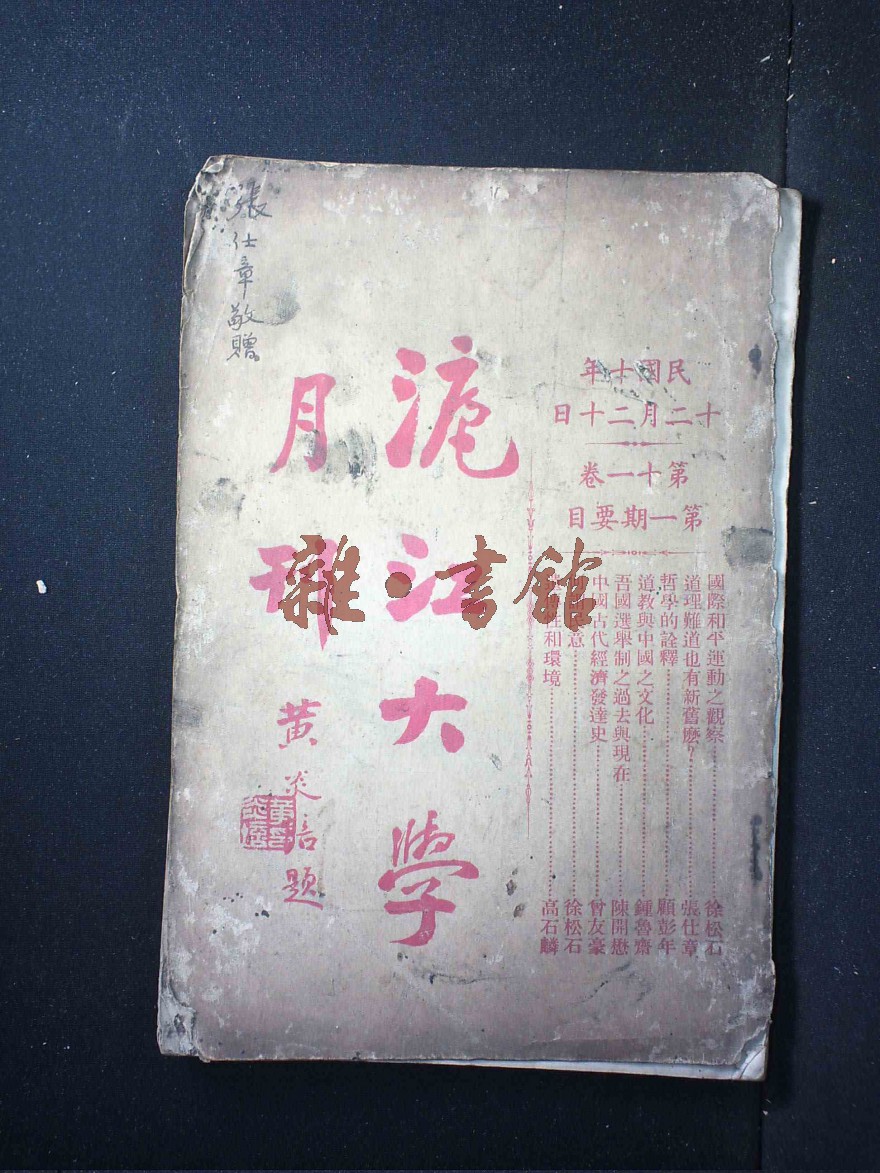 民國十年
十二月二十日
第十一卷
第一期要目
國際和平運動之觀察 徐松石
道理難道也有新舊麽 張仕章
哲學的詮釋 顧彭年
道教與中國之文化 鍾魯齋
吾國選舉制之過去與現在 陳開懋
中國古代經濟發達史 曾友豪
意 徐松石
性和環境 高石麟
滬江大學
月刊
黃炎培題
張仕章敬贈
雜·書館